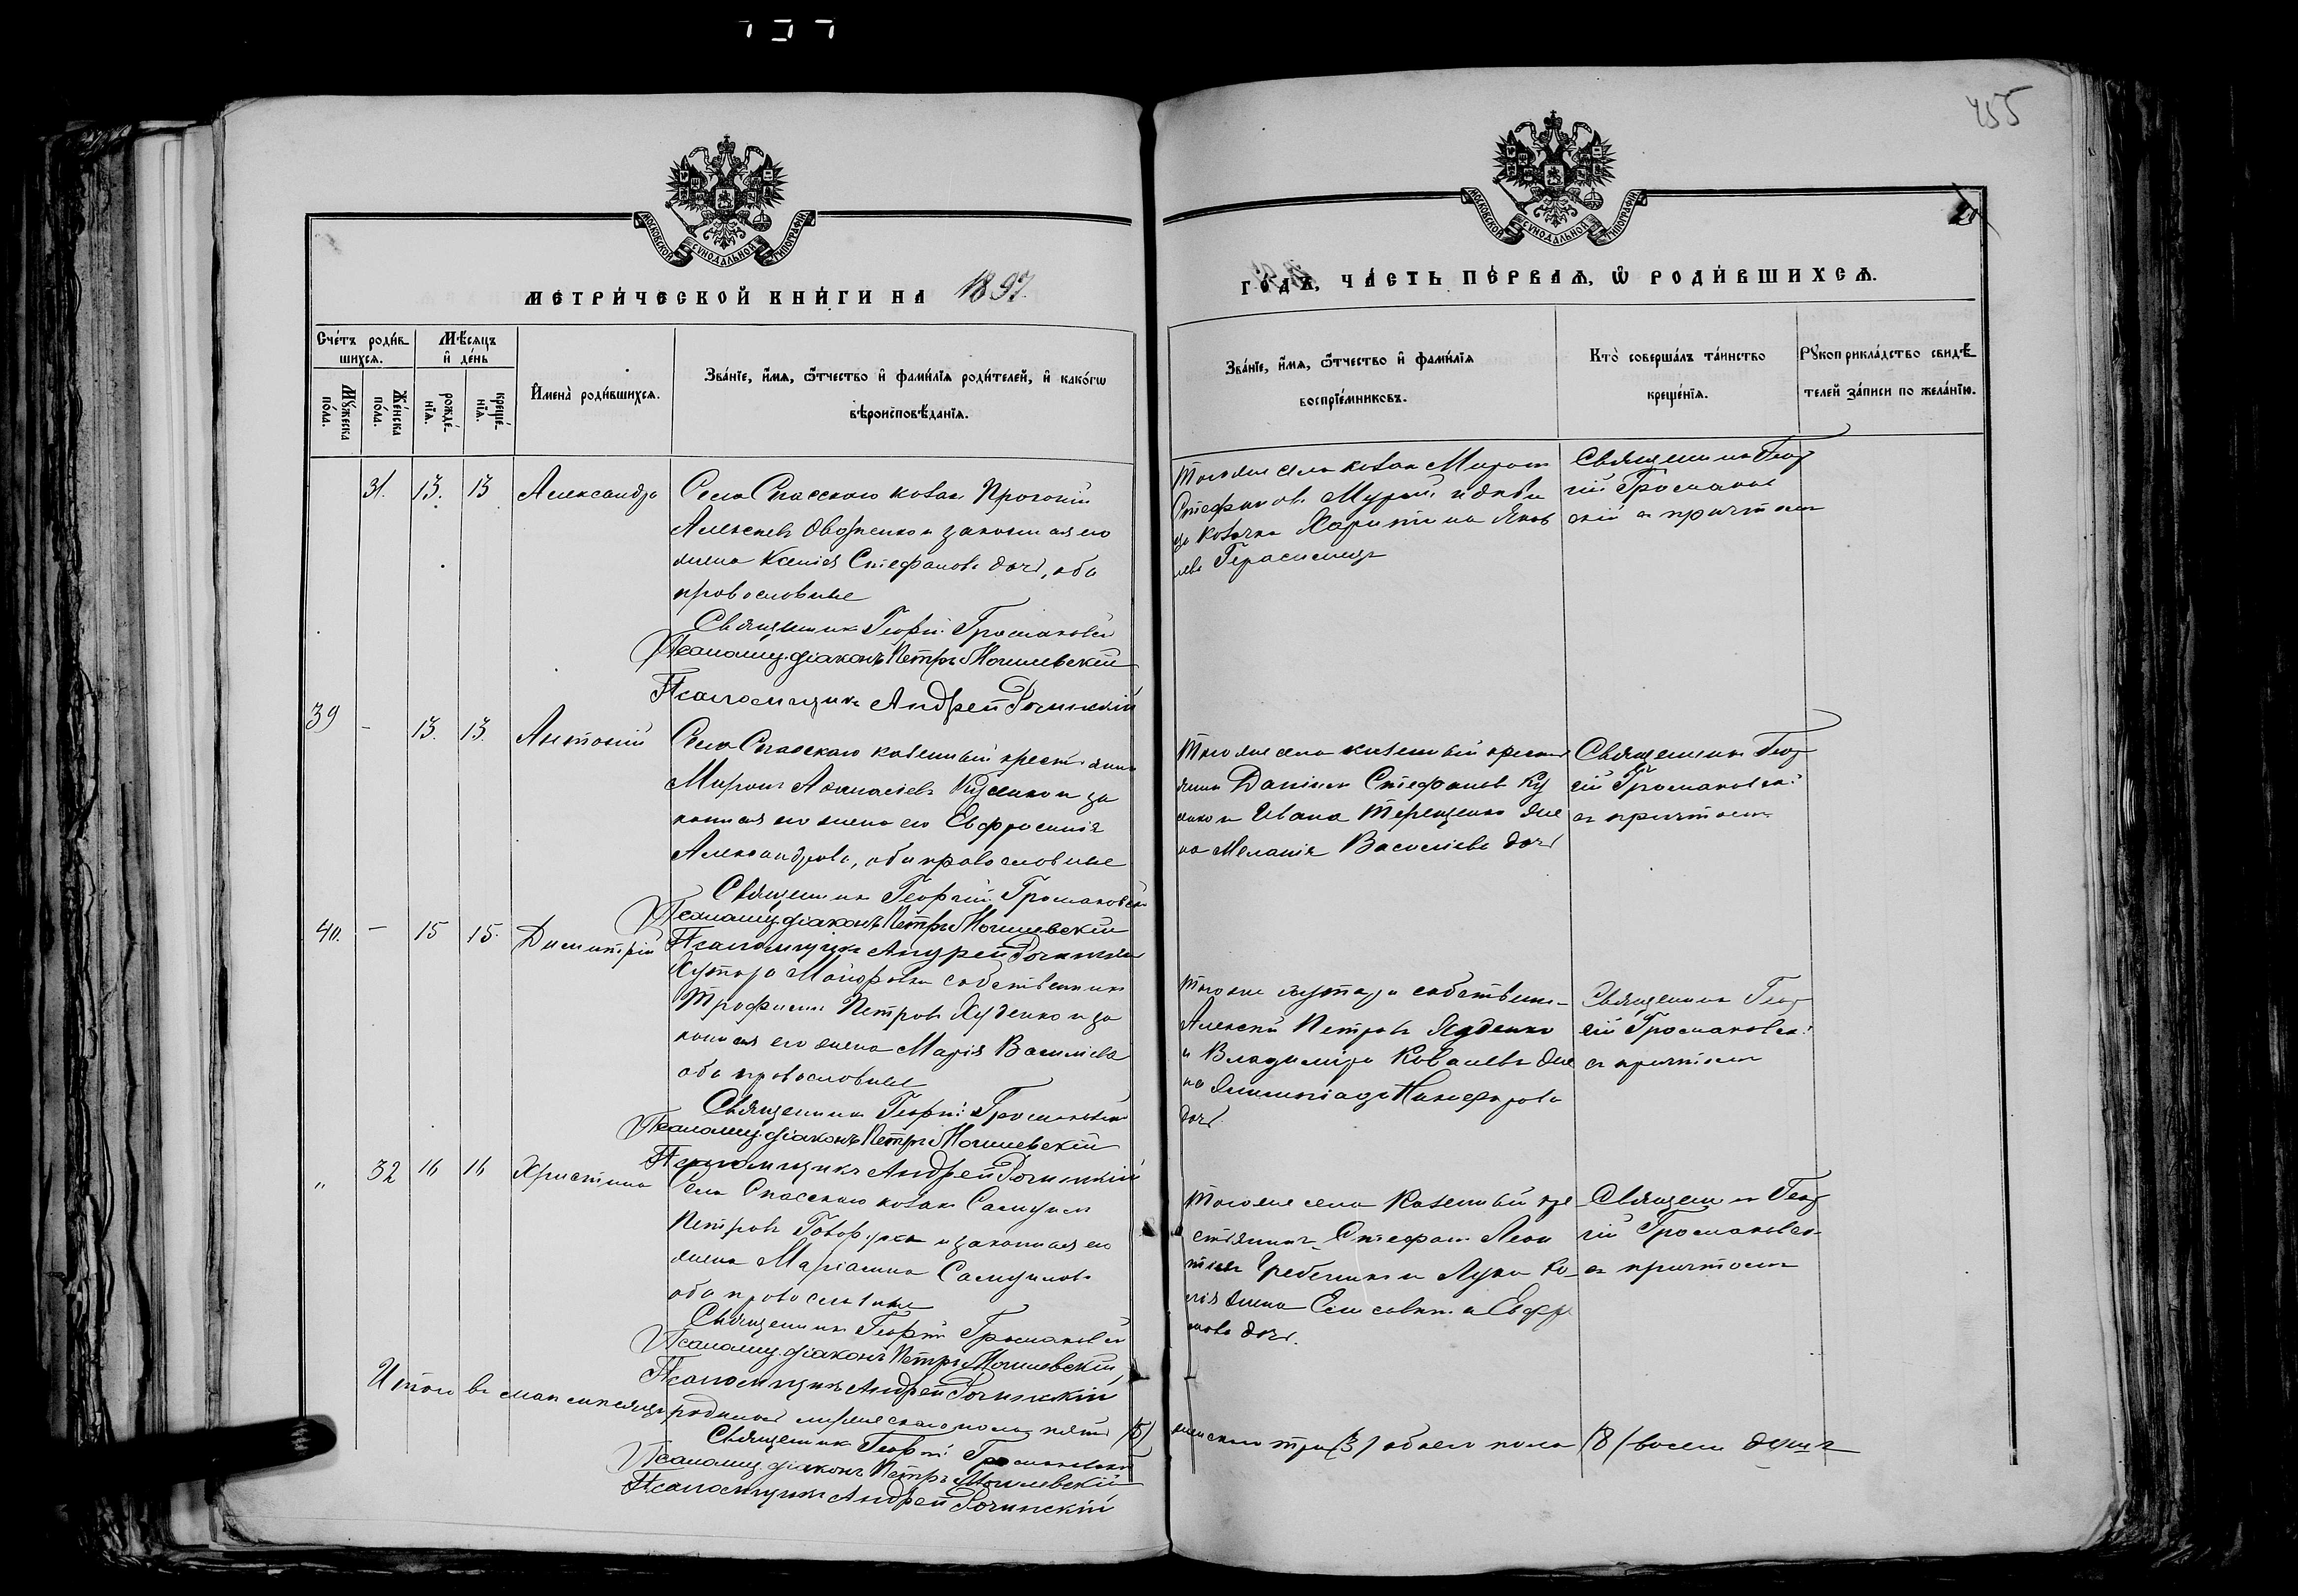 455
20
МОСКОВСКОЙ СѴНОДАЛЬНОЙ ТИПОГРАФІИ
МОСКОВСКОЙ СѴНОДАЛЬНОЙ ТИПОГРАФІИ
МЕТРИ́ЧЕСКОЙ КНИ́ГИ НА 1897
ГО́ДЪ, ЧА́СТЬ ПЕ́РВАѦ, Ѡ҆ РОДИ́ВШИХСѦ.
Сче́тъ роди́в
шихсѧ.
Мѣ́сяцъ
и҆ де́нь
Мꙋ́жеска
по́ла.
Же́нска
по́ла.
рожде́
нїѧ.
креще́
нїѧ.
И҆мена̀ роди́вшихсѧ.
Зва́нїе, и҆́мѧ, ѻ҆́тчество и҆ фами́лїѧ роди́телей, и҆ како́гѡ
вѣроисповѣ́данїѧ.
Зва́нїе, и҆́мѧ, ѻ҆́тчество и҆ фами́лїѧ
воспрїе́мниковъ.
Кто̀ соверша́лъ та́инство
креще́нїѧ.
Рꙋкоприкла́дство свидѣ́
телей за́писи по жела́нїю.
31. 13. 13 Александра
Села Спасскаго козак
Алексѣевъ и законная его
жена Ксенія Стефанова дочь, оба
православные
Священник Георгій Громаковскій
Псаломщ. діаконъ Петръ Могилевскій
Псаломщикъ Андрей
Того же села козак Мирон
Стефанов и
козачка Харитина Яков
лева
Священник Геор
гій Громаков
скій с причтом
39 - 13. 13. Антоній
Села Спасскаго казенный крестьянин
Мирон Афанасіевъ и за
конная его жена его Евфросинія
Александрова, оба православные
Священник Георгій Громаковскій
Псаломщ. діаконъ Петръ Могилевскій
Псаломщикъ Андрей
Того же села казенный крестья
нин Стефанов Ку
и Ивана Терещенко же
на Меланія Василіева дочь
Священник Геор
гій Громаковскій
с причтом
40. - 15 15. Димитрій
Хутора собственник
Трофим Петров Худенко и за
конная его жена Марія Василіева
оба православные
Священник Георгій Громаковскій
Псаломщ. діаконъ Петръ Могилевскій
Псаломщикъ Андрей
Того же хутора собственник
Алексѣй Петровъ Худенко
и Владиміра Ковалевъ же
на Никифорова
дочь.
Священник Геор
гій Громаковскій
с причтом
" 32 16 16 Христина
Села Спасскаго козак Самуил
Петровъ и законная его
жена Маріанна Самуилова
оба православные
Священник Георгій Громаковскій
Псаломщ. діаконъ Петръ Могилевскій
Псаломщикъ Андрей
Того же села Казенный кре
стьянинъ Стефан Леон
тіев Гребеник и Луки Ко
жена Елисавета
дочь.
Священник Геор
гій Громаковскій
с причтом
Итого въ мѣсяцѣ родилось мужескаго пола пять (5) женскаго три (3) обоего пола (8) восемь душъ
Священник Георгій Громаковскій
Псаломщ. діаконъ Петръ Могилевскій
Псаломщикъ Андрей